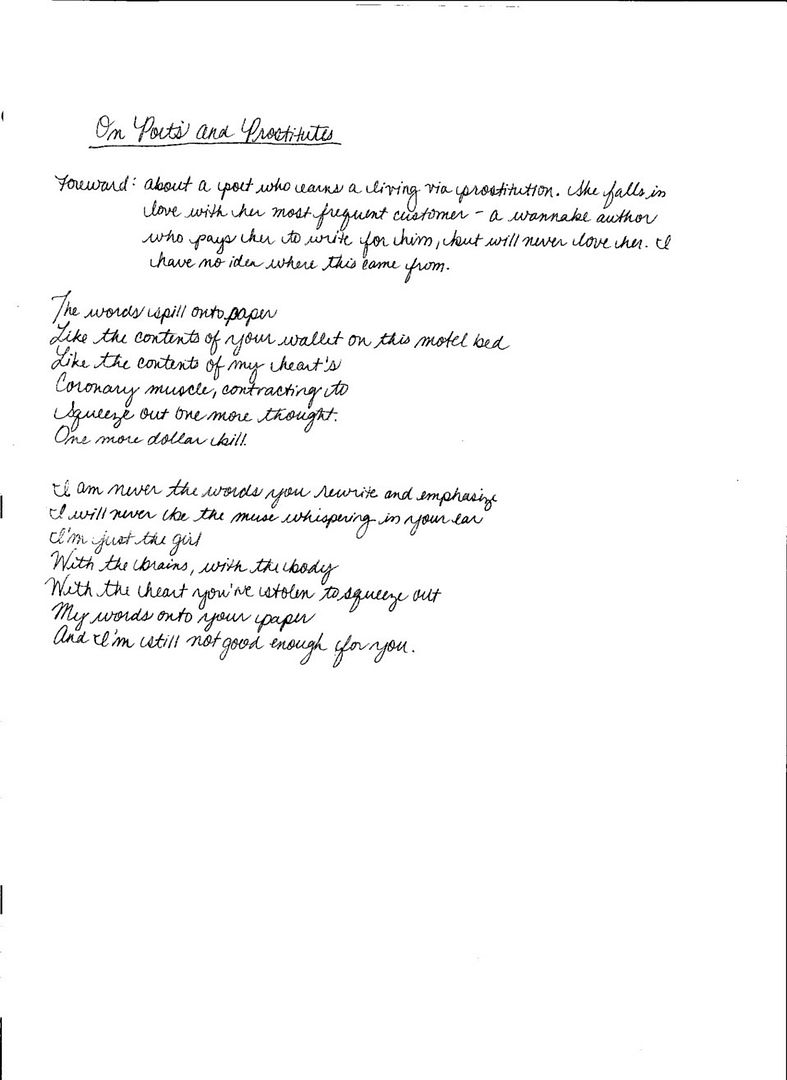 On Poets and Prostitutes
Foreward: about a poet who earns a living via prostitution. She falls in
love with her most frequent customer - a wannabe author
who pays her to write for him, but will never love her. I
have no idea where this came from.
The words spill onto paper
Like the contents of your wallet on this motel bed
Like the contents of my heart's
Coronary muscle, contracting to
Squeeze out one more thought.
One more dollar bill.
I am never the words you rewrite and emphasize
I will never be the muse whispering in your ear
I'm just the girl
With the brains, with the body
With the heart you've stolen to squeeze out
My words onto your paper
And I'm still not good enough for you.